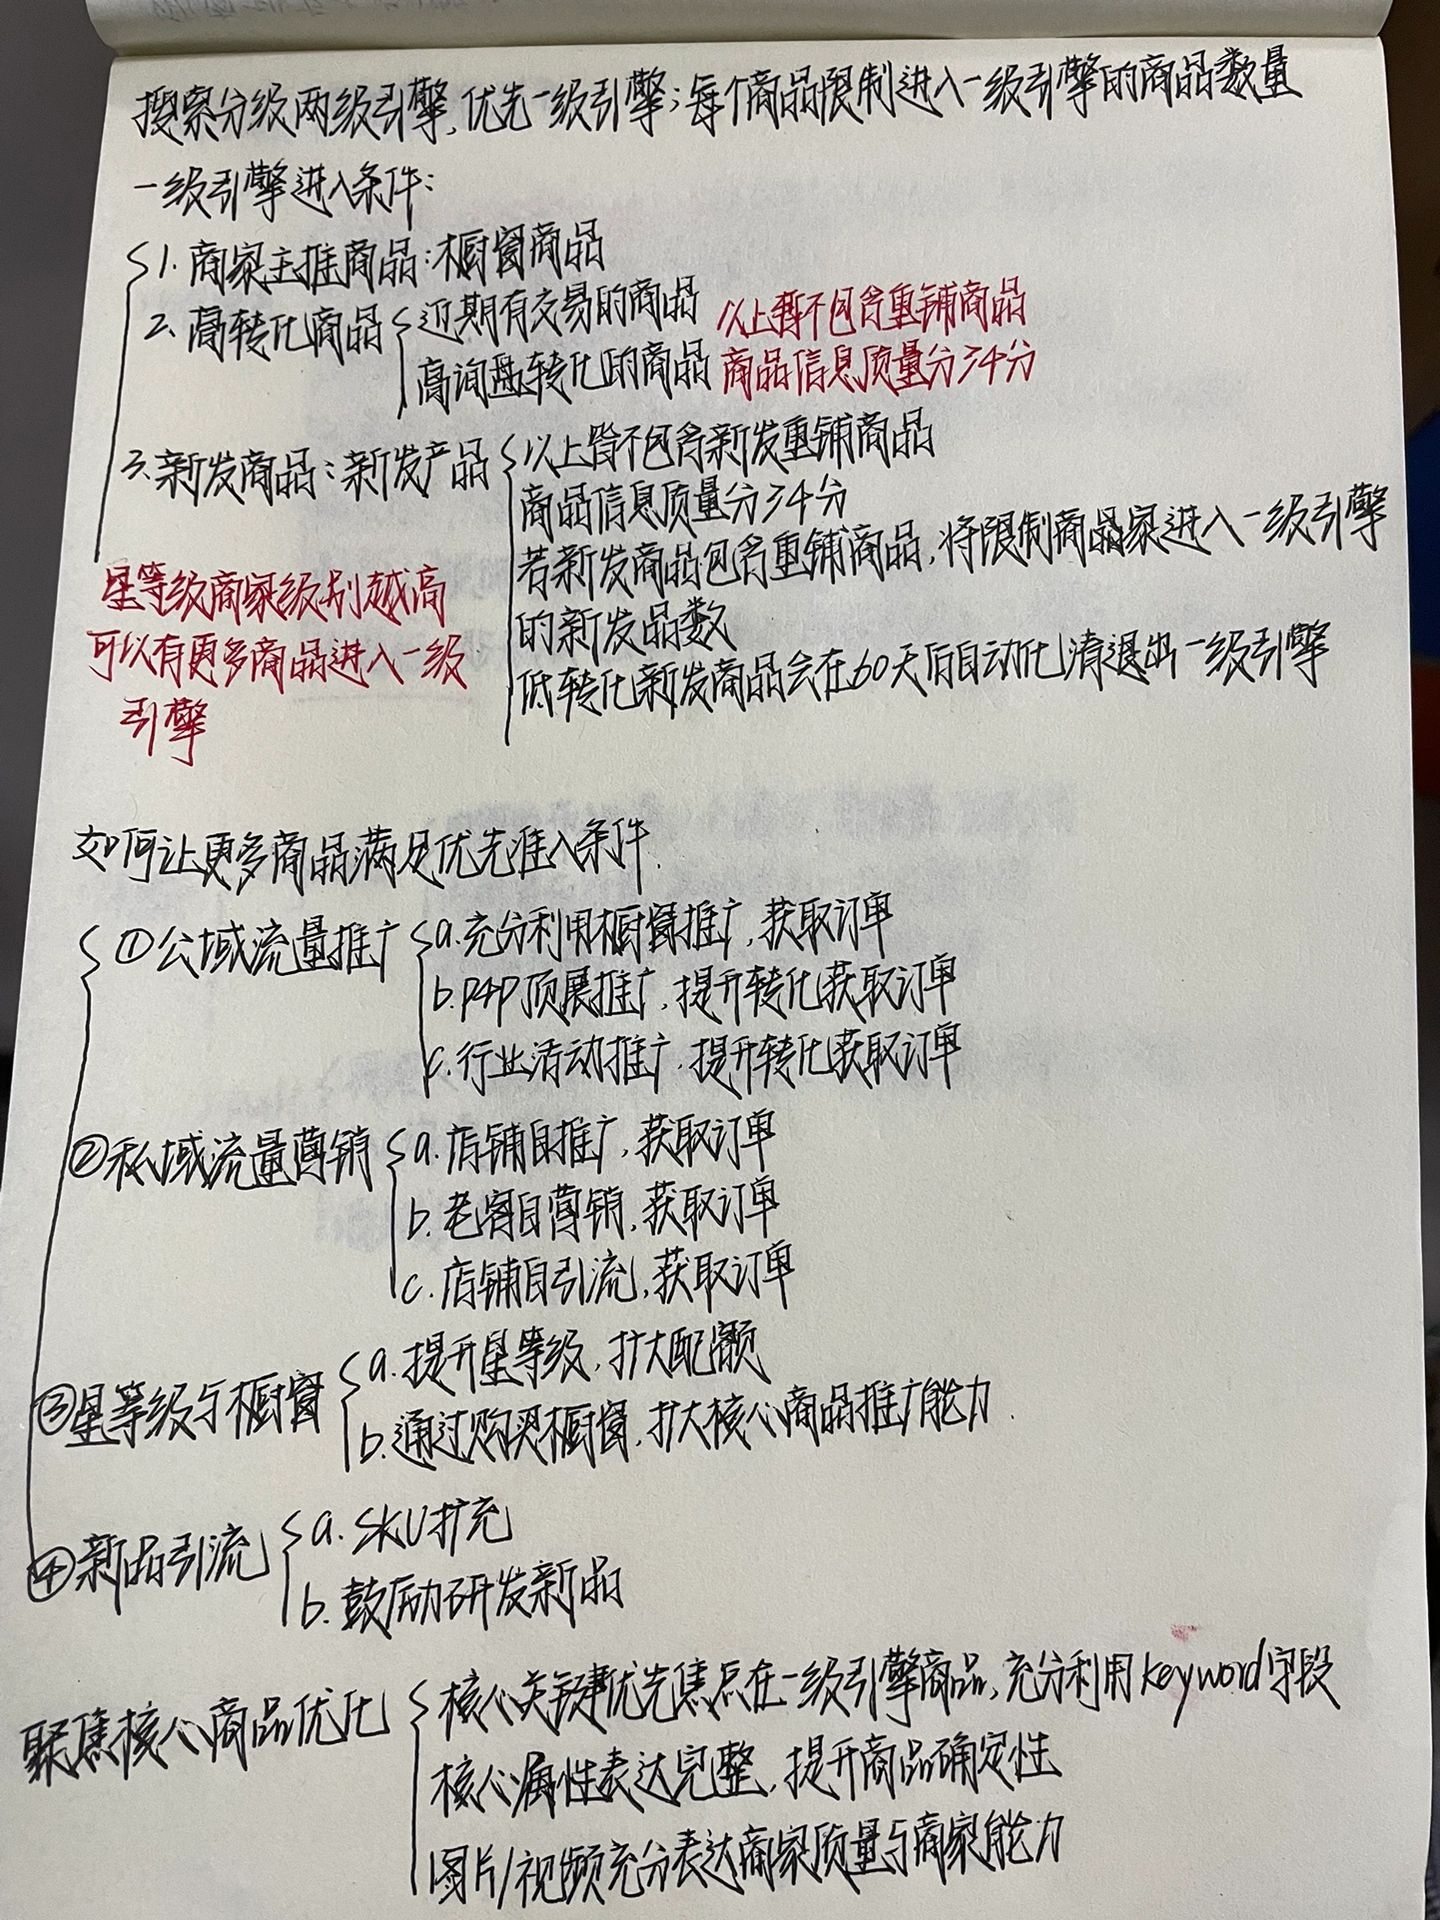 搜索分级两级引擎,优先一级引擎;每个商品限制进入一级引擎的商品数量
一级引擎进入条件:
1.商家主推商品:橱窗商品
2.高转化商品 近期有交易的商品 以上暂不包含重铺商品
高询盘转化的商品 商品信息质量分≥4分
3.新发商品:新发产品 以上皆不包含新发重铺商品
商品信息质量分≥4分
若新发商品包含重铺商品,将限制商家进入一级引擎
的新发品数
低转化新发商品会在60天后自动化清退出一级引擎
星等级商家级别越高
可以有更多商品进入一级
引擎
如何让更多商品满足优先准入条件.
①公域流量推广 a.充分利用橱窗推广,获取订单
b.P4P顶展推广,提升转化获取订单
c.行业活动推广.提升转化获取订单
②私域流量营销 a.店铺自推广,获取订单
b.老客自营销,获取订单
c.店铺自引流,获取订单
③星等级与橱窗 a.提升星等级,扩大配额
b.通过购买橱窗,扩大核心商品推广能力.
④新品引流 a.SKU扩充
b.鼓励研发新品
聚焦核心商品优化 核心关键优先焦点在一级引擎商品,充分利用keyword字段
核心属性表达完整,提升商品确定性
图片/视频充分表达商家质量与商家能力